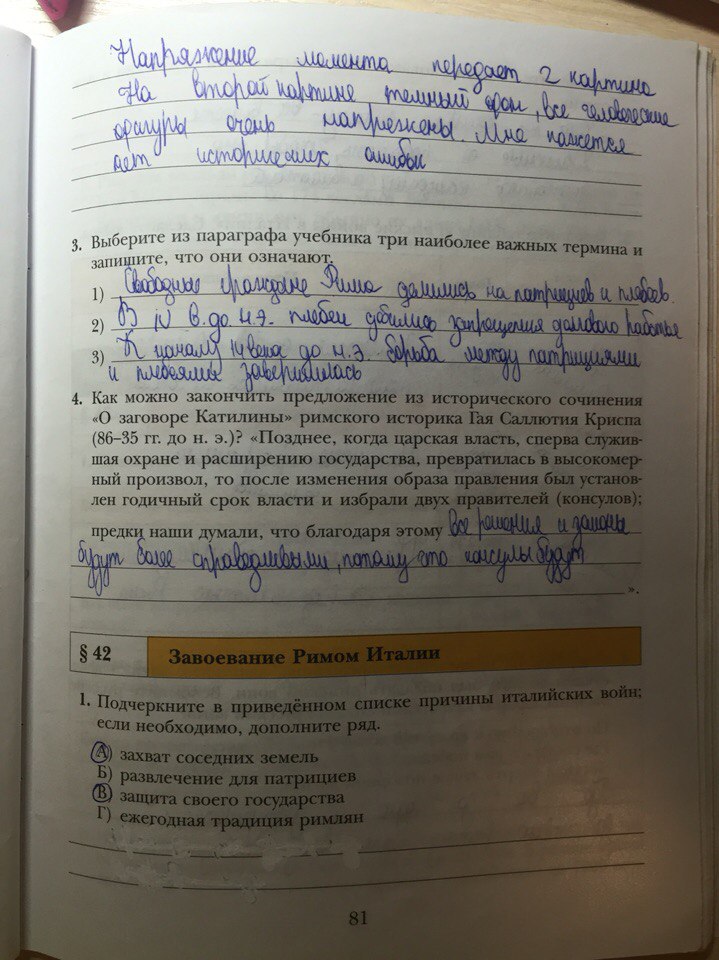 Напряжение момента передает 2 картина
На второй картине темный фон, все человеческие
фигуры очень напряжены. Мне кажется
нет исторических ошибок
3. Выберите из параграфа учебника три наиболее важных термина и
запишите, что они означают.
1) Свободные граждане Рима делились на патрициев и плебеев.
2) В IV в. до н.э. плебеи добились запрещения долгового рабства
3) К началу века до н.э. борьба между патрициями
и плебеями завершилась
4. Как можно закончить предложение из исторического сочинения
«О заговоре Катилины» римского историка Гая Саллютия Криспа
(86–35 гг. до н. э.)? «Позднее, когда царская власть, сперва служив-
шая охране и расширению государства, превратилась в высокомер-
ный произвол, то после изменения образа правления был установ-
лен годичный срок власти и избрали двух правителей (консулов);
предки наши думали, что благодаря этому все решения и законы
будут более справедливыми, потому что консулы будут
».
§ 42 Завоевание Римом Италии
1. Подчеркните в приведённом списке причины италийских войн;
если необходимо, дополните ряд.
А) захват соседних земель
Б) развлечение для патрициев
В) защита своего государства
Г) ежегодная традиция римлян
81